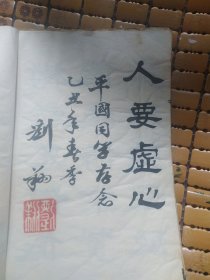 人要虚心
平國同学存念
乙丑年春季
劉